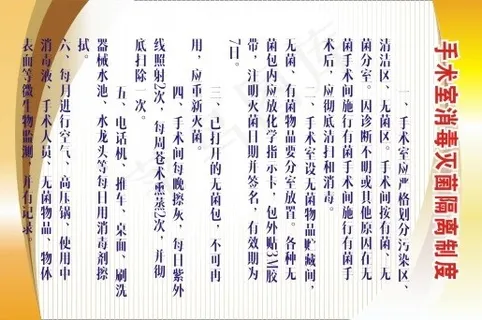 手术室消毒灭菌隔离制度
一、手术室应严格划分污染区、
清洁区、无菌区。手术间按有菌、无
菌分室。因诊断不明或其他原因在无
菌手术间施行有菌手术间施行有菌手
术后，应彻底清扫和消毒。
二、手术室设无菌物品贮藏间，
无菌、有菌物品要分室放置。各种无
菌包内应放化学指示卡，包外贴3M胶
带，注明灭菌日期并签名，有效期为
7日。
三、已打开的无菌包，不可再
用，应重新灭菌。
四、手术间每晚擦灰，每日紫外
线照射2次，每周苍术熏蒸2次，并彻
底扫除一次。
五、电话机、推车、桌面、刷洗
器械水池、水龙头等每日用消毒剂擦
拭。
六、每月进行空气、高压锅、使用中
消毒液、手术人员、无菌物品、物体
表面等微生物监测，并有记录。